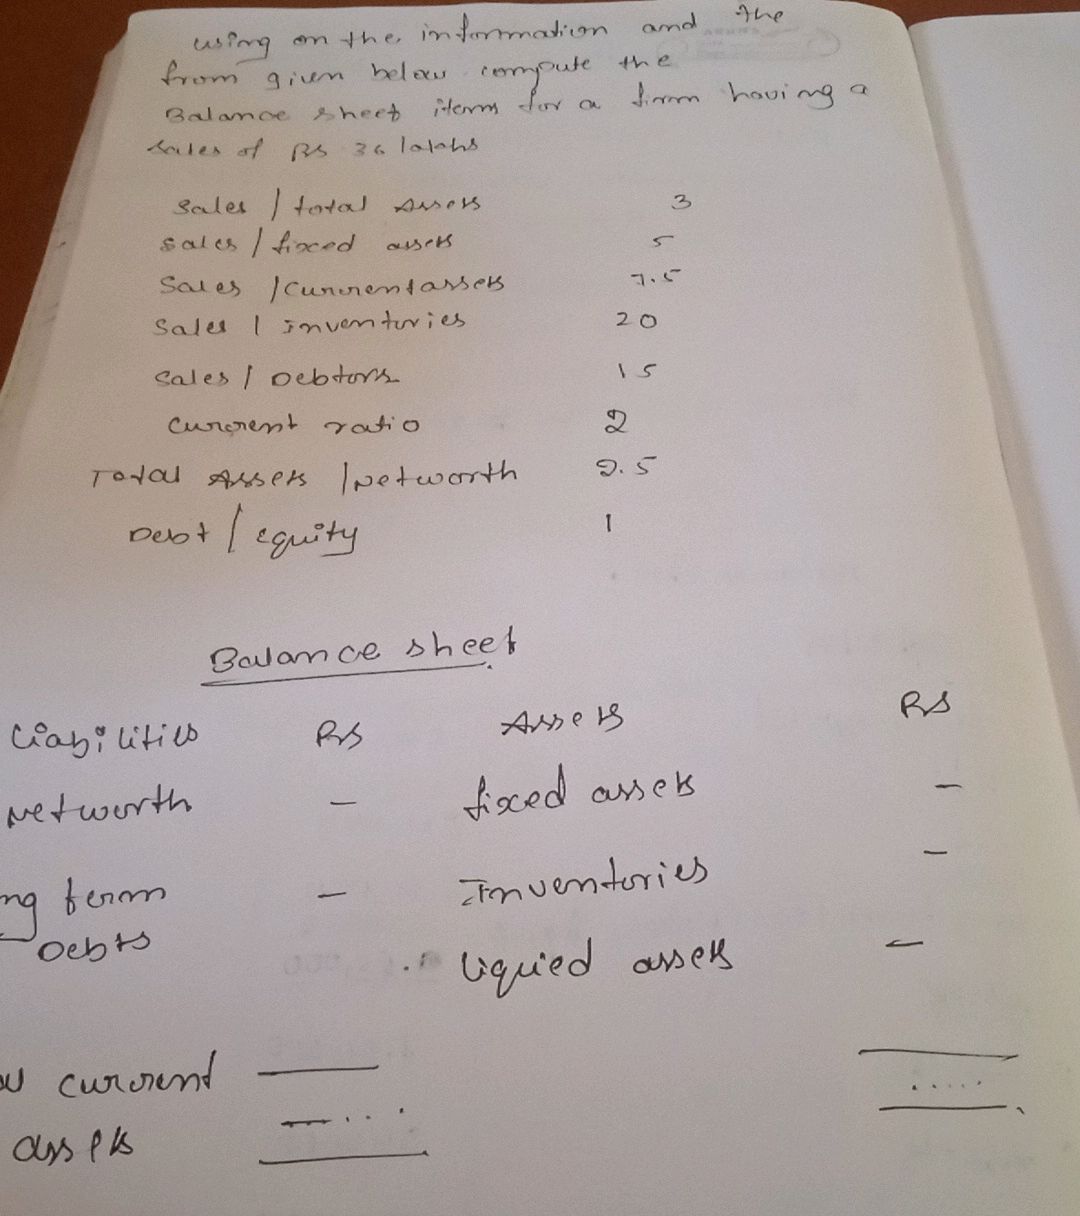 using on the information and the
from given below compute the
Balance sheet items for a firm having a
sales of Rs 36 lakhs
sales / total Assets 3
sales / fixed assets 5
Sales / current assets 7.5
Sales / Inventories 20
Sales / Debtors 15
current ratio 2
Total Assets / Networth 2.5
Debt / equity 1
Balance sheet
Liabilities Rs Assets Rs
Networth - fixed assets -
ng term - Inventories -
Debts liquied assets -
current
assets